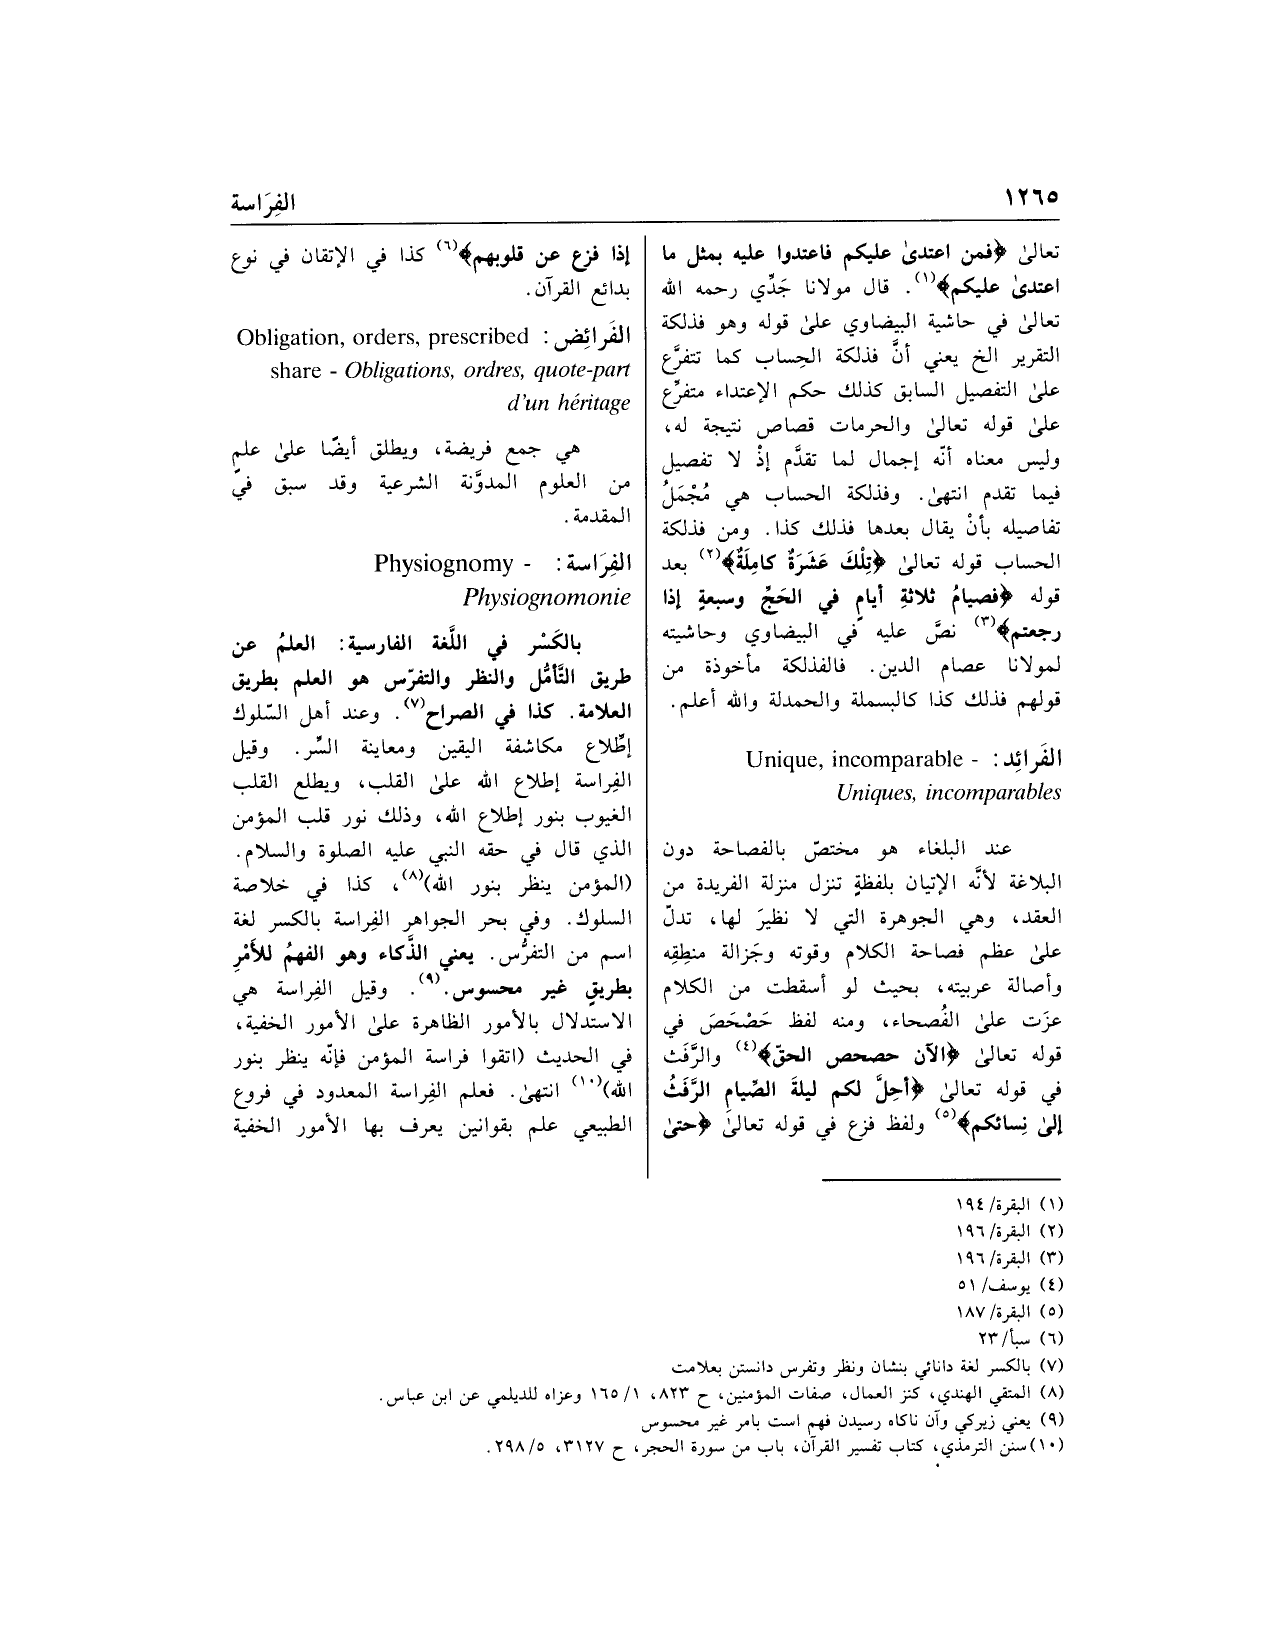 ١٢٦٥
الفِرَاسة
تعالىٰ ﴿فمن اعتدىٰ عليكم فاعتدوا عليه بمثل ما
اعتدىٰ عليكم﴾(١). قال مولانا جَدِّي رحمه الله
تعالىٰ في حاشية البيضاوي علىٰ قوله وهو فذلكة
التقرير الخ يعني أنَّ فذلكة الحِساب كما تتفرَّع
علىٰ التفصيل السابق كذلك حكم الإعتداء متفرِّع
علىٰ قوله تعالىٰ والحرمات قصاص نتيجة له،
وليس معناه أنّه إجمال لما تقدَّم إذْ لا تفصيل
فيما تقدم انتهىٰ. وفذلكة الحساب هي مُجْمَلُ
تفاصيله بأنْ يقال بعدها فذلك كذا. ومن فذلكة
الحساب قوله تعالىٰ ﴿تِلْكَ عَشَرَةٌ كامِلَةٌ﴾(٢) بعد
قوله ﴿فصيامُ ثلاثةِ أيامٍ في الحَجِّ وسبعةٍ إذا
رجعتم﴾(٣) نصَّ عليه في البيضاوي وحاشيته
لمولانا عصام الدين. فالفذلكة مأخوذة من
قولهم فذلك كذا كالبسملة والحمدلة والله أعلم.
الفَرائِد: - Unique, incomparable
Uniques, incomparables
عند البلغاء هو مختصّ بالفصاحة دون
البلاغة لأنَّه الإتيان بلفظةٍ تنزل منزلة الفريدة من
العقد، وهي الجوهرة التي لا نظيرَ لها، تدلّ
علىٰ عظم فصاحة الكلام وقوته وجَزالة منطِقِه
وأصالة عربيته، بحيث لو أسقطت من الكلام
عزّت علىٰ الفُصحاء، ومنه لفظ حَصْحَصَ في
قوله تعالىٰ ﴿الآن حصحص الحقّ﴾(٤) والرَّفَث
في قوله تعالىٰ ﴿أحِلَّ لكم ليلةَ الصِّيام الرَّفَثُ
إلىٰ نِسائكم﴾(٥) ولفظ فزع في قوله تعالىٰ ﴿حتىٰ
إذا فزع عن قلوبهم﴾(٦) كذا في الإتقان في نوع
بدائع القرآن.
الفَرائِض: Obligation, orders, prescribed
share - Obligations, ordres, quote-part
d'un héritage
هي جمع فريضة، ويطلق أيضًا علىٰ علم
من العلوم المدوَّنة الشرعية وقد سبق في
المقدمة.
الفِرَاسة: - Physiognomy
Physiognomonie
بالكَسْر في اللَّغة الفارسية: العلمُ عن
طريق التَّأمُّل والنظر والتفرّس هو العلم بطريق
العلامة. كذا في الصراح(٧). وعند أهل السّلوك
إطِّلاع مكاشفة اليقين ومعاينة السِّر. وقيل
الفِراسة إطلاع الله علىٰ القلب، ويطلع القلب
الغيوب بنور إطلاع الله، وذلك نور قلب المؤمن
الذي قال في حقه النبي عليه الصلوة والسلام.
(المؤمن ينظر بنور الله)(٨)، كذا في خلاصة
السلوك. وفي بحر الجواهر الفِراسة بالكسر لغة
اسم من التفرُّس. يعني الذَّكاء وهو الفهمُ للأمْرِ
بطريقٍ غير محسوس.(٩). وقيل الفِراسة هي
الاستدلال بالأمور الظاهرة علىٰ الأمور الخفية،
في الحديث (اتقوا فراسة المؤمن فإنّه ينظر بنور
الله)(١٠) انتهىٰ. فعلم الفِراسة المعدود في فروع
الطبيعي علم بقوانين يعرف بها الأمور الخفية
(١) البقرة/١٩٤
(٢) البقرة/١٩٦
(٣) البقرة/١٩٦
(٤) يوسف/٥١
(٥) البقرة/١٨٧
(٦) سبأ/٢٣
(٧) بالكسر لغة دانائي بنشان ونظر وتفرس دانستن بعلامت
(٨) المتقي الهندي، كنز العمال، صفات المؤمنين، ح ٨٢٣، ١/١٦٥ وعزاه للديلمي عن ابن عباس.
(٩) يعني زيركي وآن ناكاه رسيدن فهم است بامر غير محسوس
(١٠) سنن الترمذي، كتاب تفسير القرآن، باب من سورة الحجر، ح ٣١٢٧، ٢٩٨/٥.